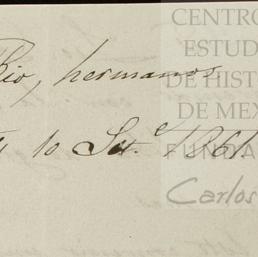 CENTRO
ESTUD
DE HIST
DE MEX
FUNDA
Carlos
Rio, hermanos.
10 Set.e 1861.